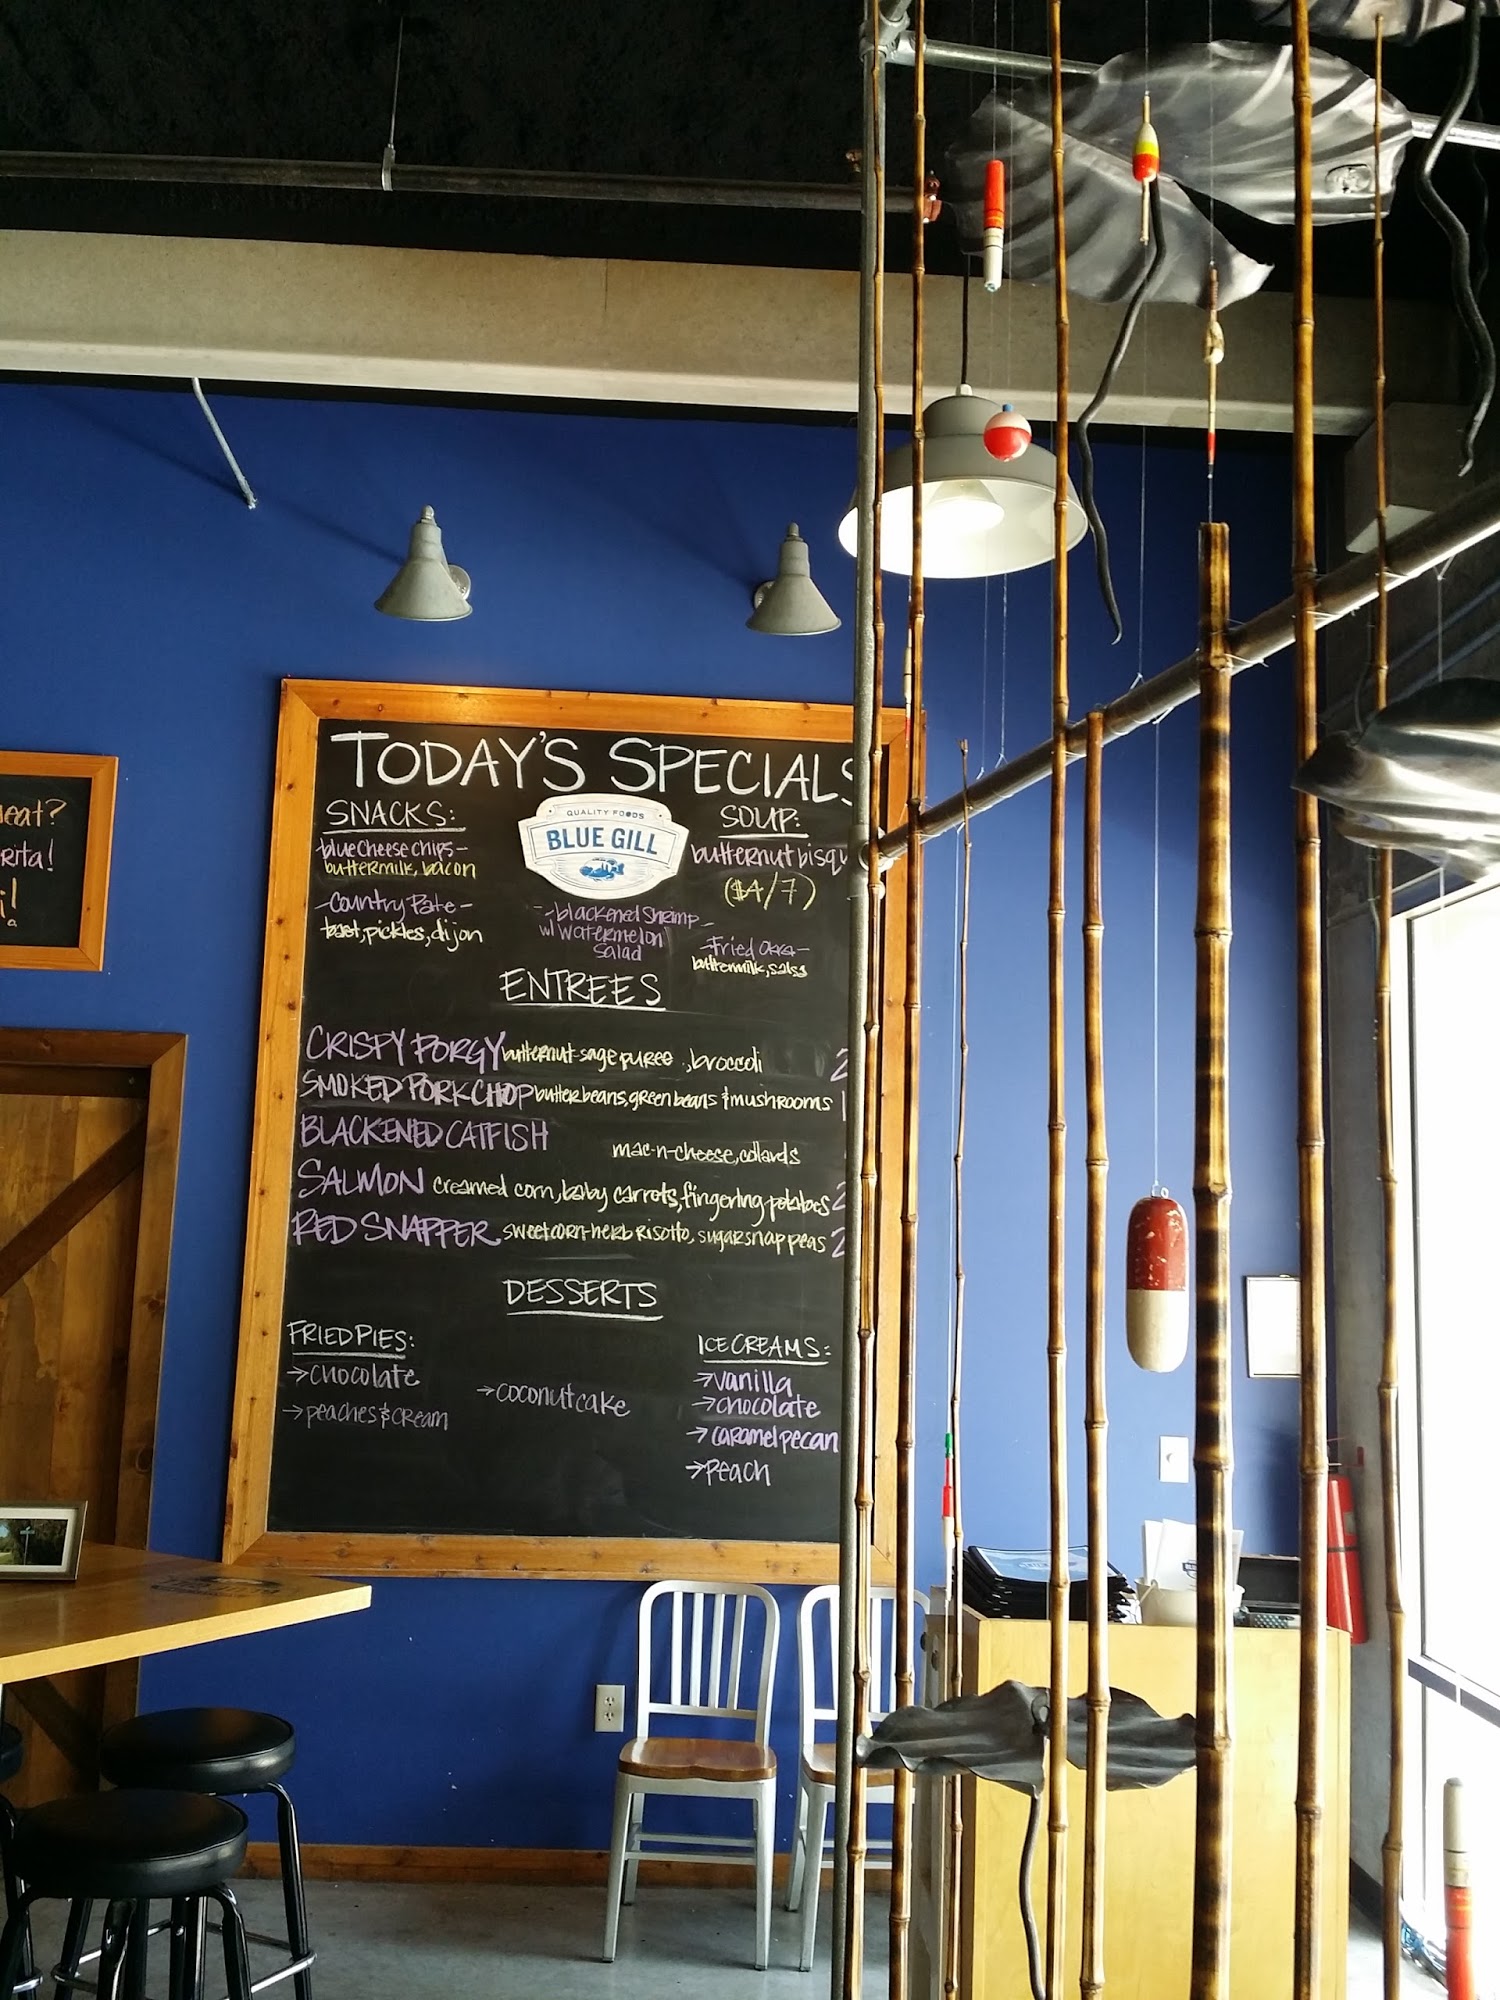 TODAY'S SPECIALS
SNACKS:
-blue cheese chips-
buttermilk, bacon
-Country Pate-
toast, pickles, dijon
QUALITY FOODS
BLUE GILL
-blackened Shrimp-
w/ Watermelon
Salad
SOUP:
butternut bisqu
($4/7)
-Fried Okra-
buttermilk, salsa
ENTREES
CRISPY PORGY butternut-sage puree , broccoli 2
SMOKED PORK CHOP butterbeans, green beans & mushrooms 1
BLACKENED CATFISH mac-n-cheese, collards
SALMON creamed corn, baby carrots, fingerling potatoes 2
RED SNAPPER sweetcorn-herb risotto, sugar snap peas 2
DESSERTS
FRIED PIES:
→chocolate
→peaches & cream
→coconut cake
ICE CREAMS:
→vanilla
→chocolate
→caramel pecan
→peach
eat?
rita!
!